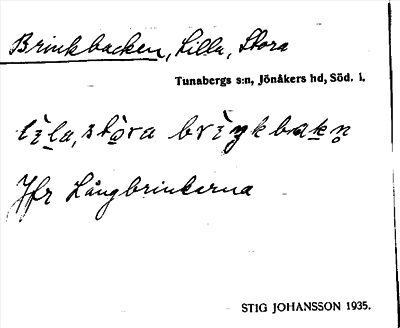 Brinkbacken, Lilla, Stora
Tunabergs s:n, Jönåkers hd, Söd. l.
lı̀la, stòra brìŋkbakn̥
Jfr Långbrinkarna
STIG JOHANSSON 1935.